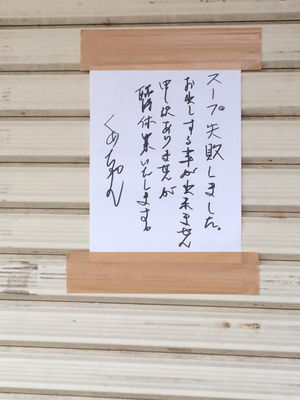 スープ失敗しました。
お出しする事が出来ません
申し訳ありませんが
臨時休業いたします。